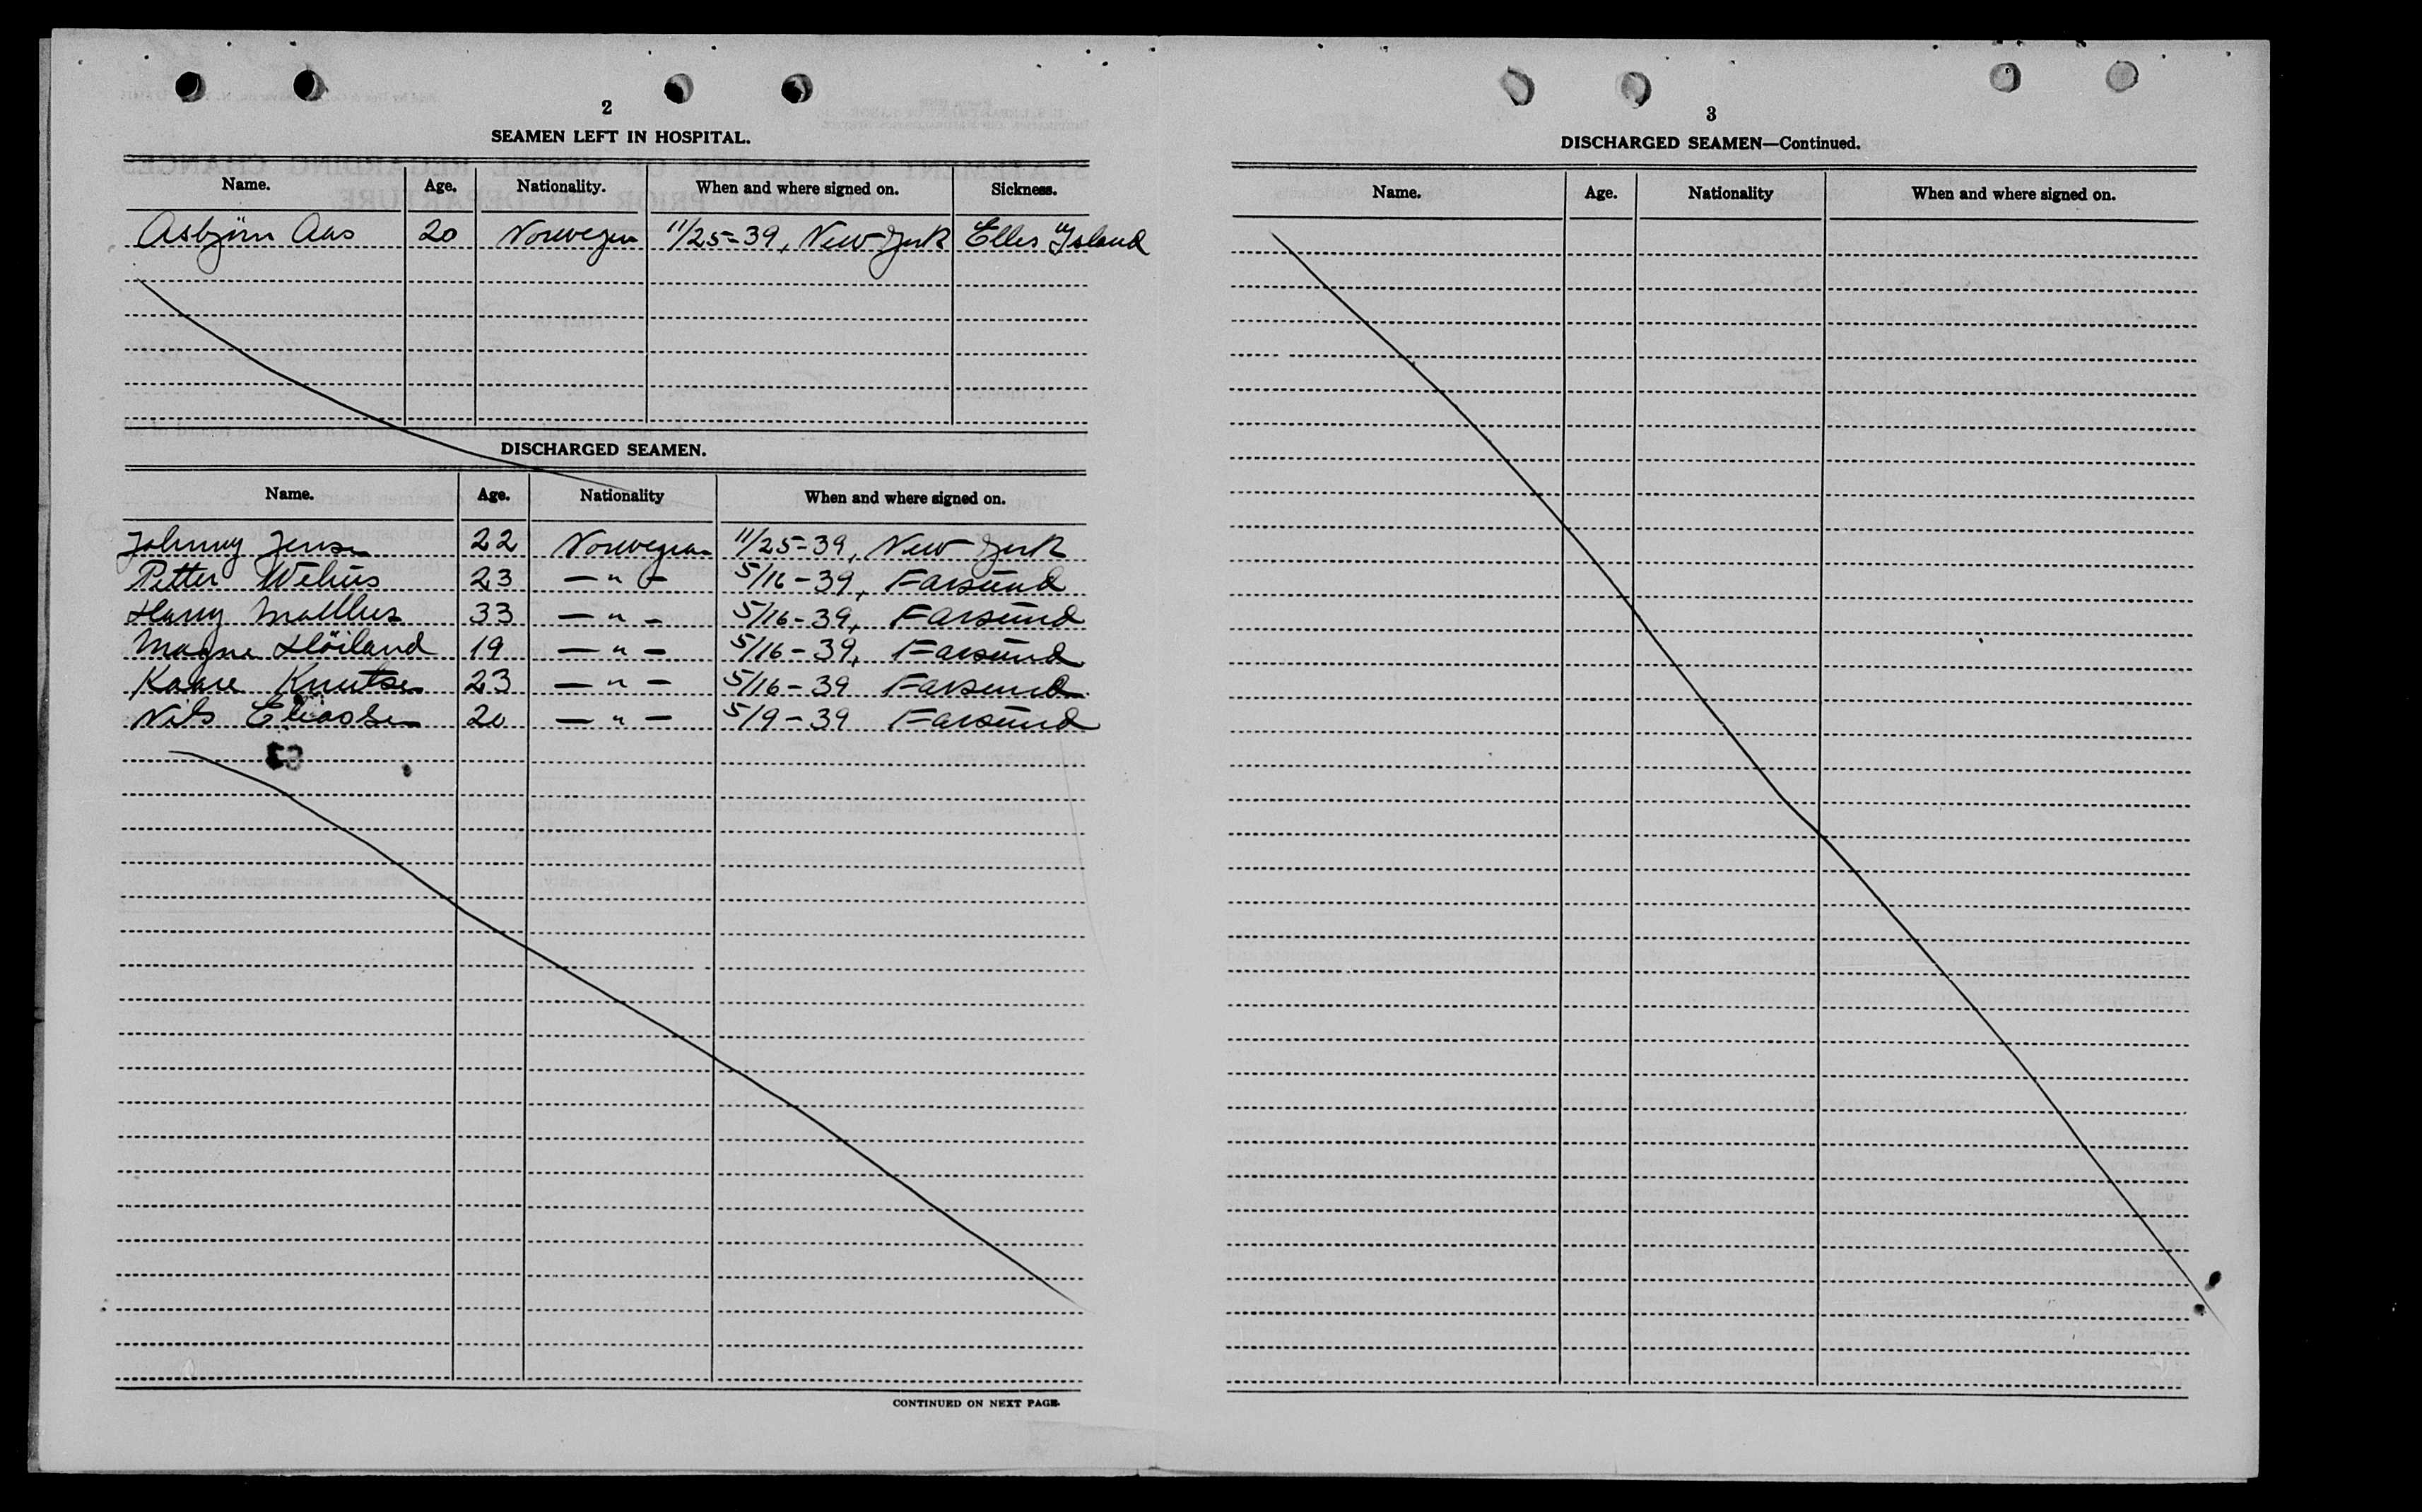 2
SEAMEN LEFT IN HOSPITAL.
Name. Age. Nationality. When and where signed on. Sickness.
Asbjörn Aas 20 Norwegian 11/25-39, New York Ellis Island
DISCHARGED SEAMEN.
Name. Age. Nationality When and where signed on.
Johnny Jensen 22 Norwegian 11/25-39, New York
Petter 23 — " — 5/16-39, Farsund
Harry 33 — " — 5/16-39, Farsund
Magne Höiland 19 — " — 5/16-39, Farsund
Kaare Knutsen 23 — " — 5/16-39 Farsund
Nils Eliassen 20 — " — 5/9-39 Farsund
CONTINUED ON NEXT PAGE.
3
DISCHARGED SEAMEN—Continued.
Name. Age. Nationality When and where signed on.